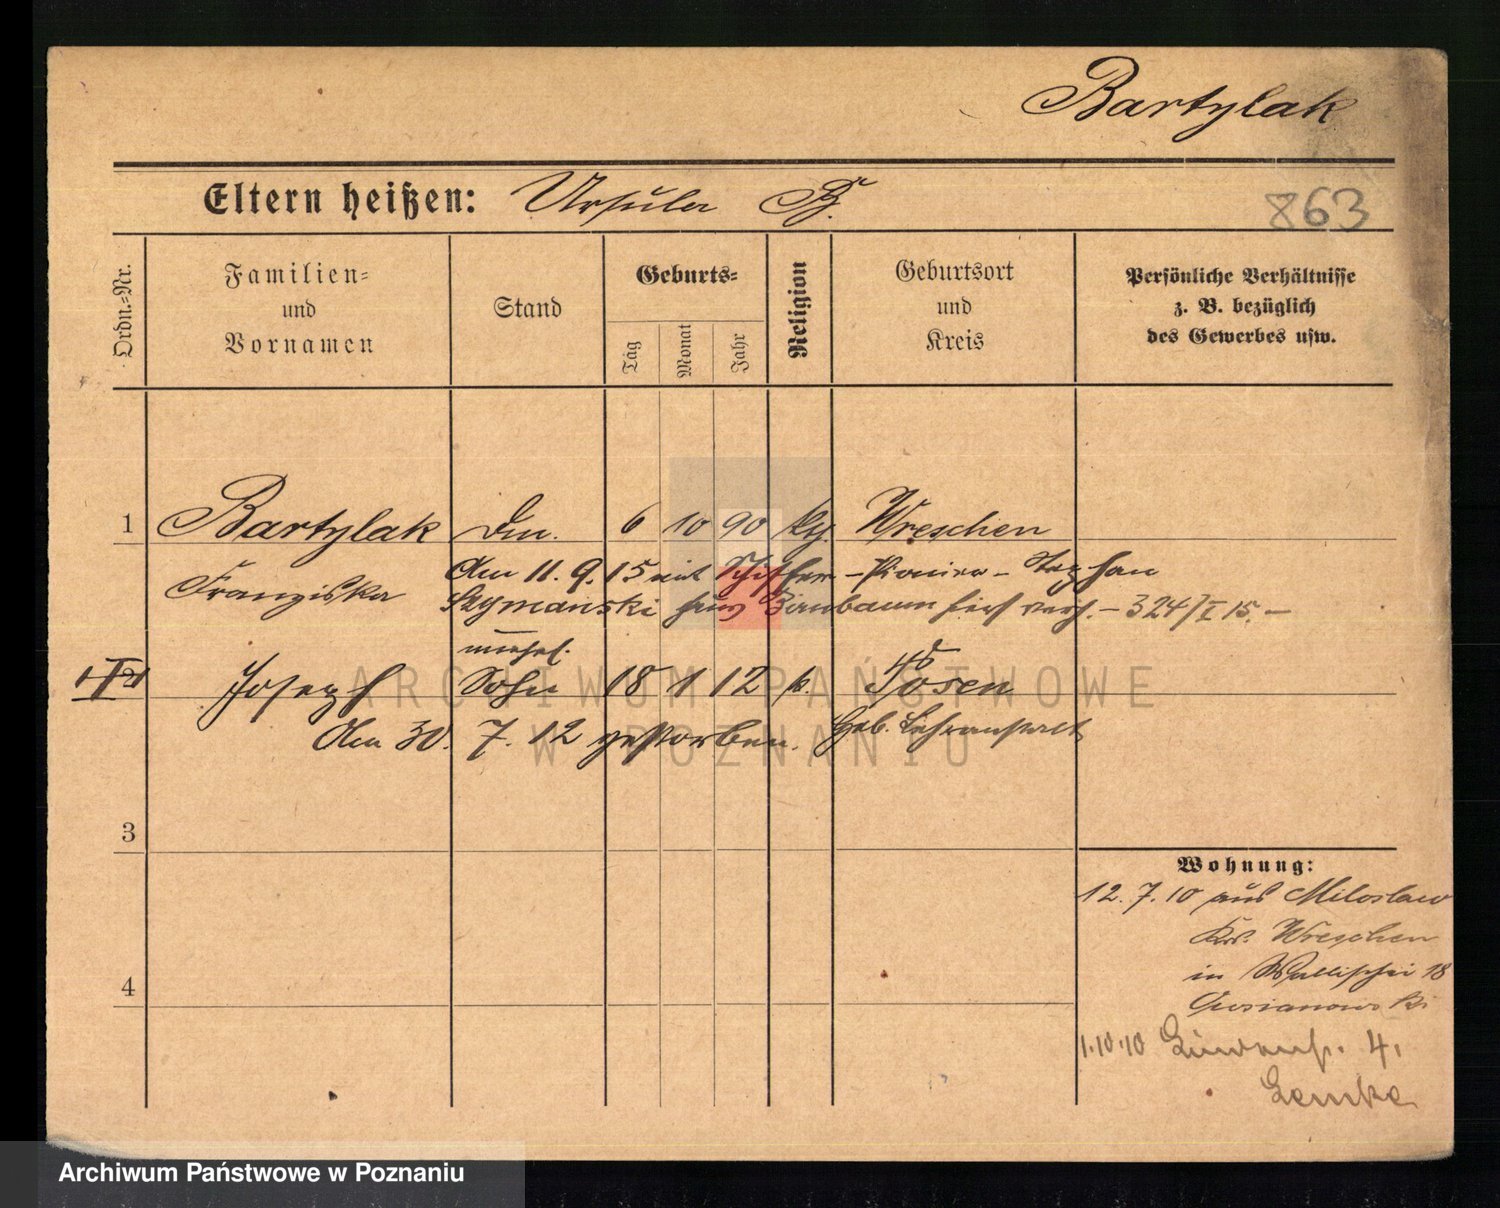 Bartylak
Eltern heißen: Ursula B.
863
Ordn.-Nr.
Familien-
und
Vornamen
Stand
Geburts-
Tag
Monat
Jahr
Religion
Geburtsort
und
Kreis
Persönliche Verhältnisse
z. B. bezüglich
des Gewerbes usw.
1 Bartylak 6 10 90 Wreschen
Franziska
Am 11. 9. 15 mit Schiffer - Pionier - Stephan
Szymanski Birnbaum hier verh. - 324/I 15. -
unehel.
Joseph Sohn 18 1 12 k. Posen
Am 30. 7. 12 gestorben. Heb. Lehranstalt
3
4
Wohnung:
12. 7. 10 aus Miloslaw
Kr. Wreschen
in Wallischei 18
1.10.10 4.
Lemke
ARCHIWUM PAŃSTWOWE
W POZNANIU
Archiwum Państwowe w Poznaniu